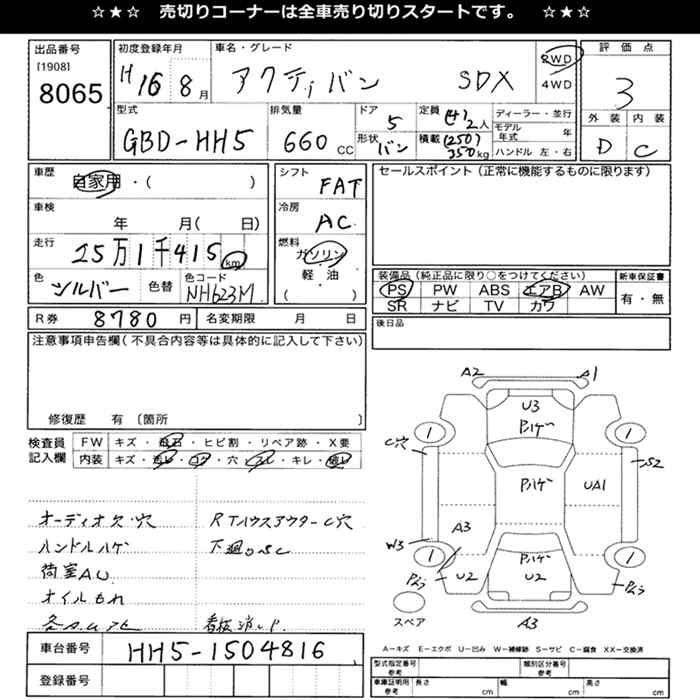 ☆★☆ 売切りコーナーは全車売り切りスタートです。 ☆★☆
出品番号
[1908]
8065
初度登録年月
H16 8月
車名・グレード
アクティバン SDX
2WD
4WD
評価点
3
外装 内装
D C
型式
GBD-HH5
排気量
660 CC
ドア 5
形状 バン
定員 (4)2人
積載 (250) 350kg
ディーラー・並行
モデル年式 年
ハンドル 左・右
車歴
自家用・( )
シフト
FAT
セールスポイント(正常に機能するものに限ります)
車検
年 月( 日)
冷房
AC
走行
25万1千415km
燃料
ガソリン
軽・油
( )
色
シルバー
色替
色コード
NH623M
装備品(純正品に限り○をつけてください)
新車保証書
PS PW ABS エアB AW
SR ナビ TV カワ
有・無
R券 8780円 名変期限 月 日
後日品
注意事項申告欄(不具合内容等は具体的に記入して下さい)
修復歴 有〔箇所 〕
検査員記入欄
FW キズ・飛石・ヒビ割・リペア跡・X要
内装 キズ・汚レ・コゲ・穴・スレ・キレ・破レ
オーディオ欠・穴
RTハウスアウターC穴
ハンドルハゲ
下廻りSC
荷室AU
オイルモレ
看板消シ
A2 A1
U3
Pハゲ
1 1
C穴
S2
Pハゲ
UA1
A3
W3
1 1
Pハゲ
U2 U2
スペア
A3
A－キズ E－エクボ U－凹み W－補修跡 S－サビ C－腐食 XX－交換済
車台番号 HH5-1504816
登録番号
型式指定番号 参考
類別区分番号 参考
車庫証明用 参考
長さ cm 幅 cm 高さ cm